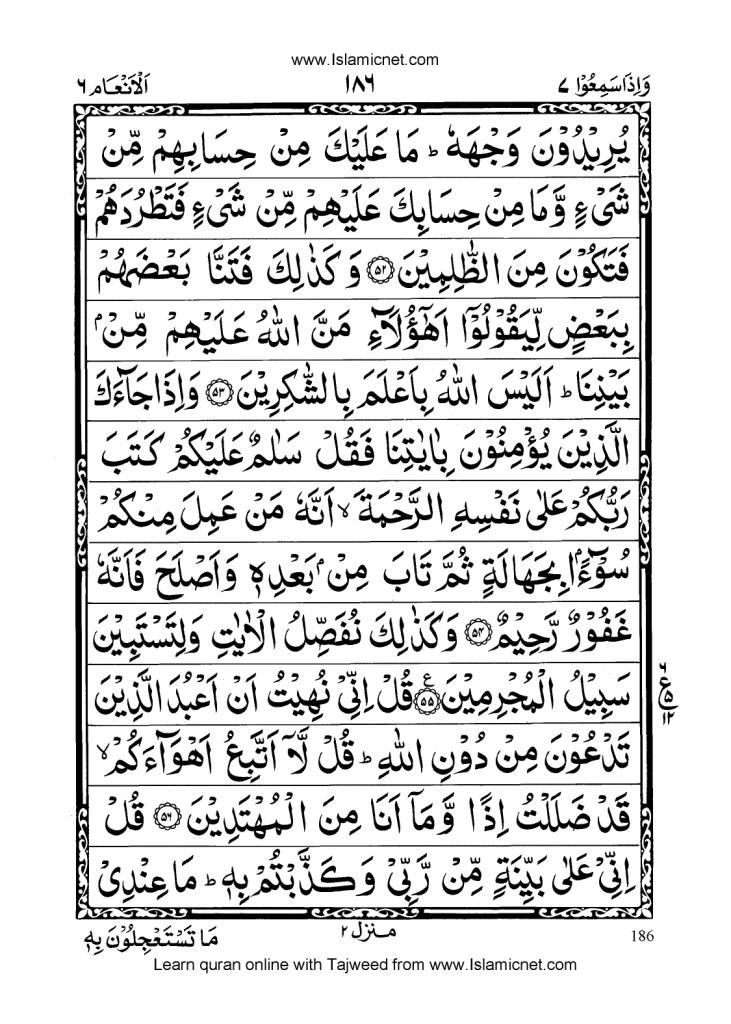 www.Islamicnet.com
وَاِذَاسَمِعُوْا ۷ ۱۸۶ اَلْاَنْعَام ۶
يُرِيْدُوْنَ وَجْهَهٗ ؕ مَا عَلَيْكَ مِنْ حِسَابِهِمْ مِّنْ
شَىْءٍ وَّمَا مِنْ حِسَابِكَ عَلَيْهِمْ مِّنْ شَىْءٍ فَتَطْرُدَهُمْ
فَتَكُوْنَ مِنَ الظّٰلِمِيْنَ ﴿۵۲﴾ وَكَذٰلِكَ فَتَنَّا بَعْضَهُمْ
بِبَعْضٍ لِّيَقُوْلُوْۤا اَهٰۤؤُلَآءِ مَنَّ اللّٰهُ عَلَيْهِمْ مِّنْۢ
بَيْنِنَا ؕ اَلَيْسَ اللّٰهُ بِاَعْلَمَ بِالشّٰكِرِيْنَ ﴿۵۳﴾ وَاِذَا جَآءَكَ
الَّذِيْنَ يُؤْمِنُوْنَ بِاٰيٰتِنَا فَقُلْ سَلٰمٌ عَلَيْكُمْ كَتَبَ
رَبُّكُمْ عَلٰى نَفْسِهِ الرَّحْمَةَ ۙ اَنَّهٗ مَنْ عَمِلَ مِنْكُمْ
سُوْٓءًۢا بِجَهَالَةٍ ثُمَّ تَابَ مِنْۢ بَعْدِهٖ وَاَصْلَحَ فَاَنَّهٗ
غَفُوْرٌ رَّحِيْمٌ ﴿۵۴﴾ وَكَذٰلِكَ نُفَصِّلُ الْاٰيٰتِ وَلِتَسْتَبِيْنَ
سَبِيْلُ الْمُجْرِمِيْنَ ﴿۵۵﴾ ع قُلْ اِنِّىْ نُهِيْتُ اَنْ اَعْبُدَ الَّذِيْنَ
۶ ع ۵ ۱۲
تَدْعُوْنَ مِنْ دُوْنِ اللّٰهِ ؕ قُلْ لَّاۤ اَتَّبِعُ اَهْوَآءَكُمْ ۙ
قَدْ ضَلَلْتُ اِذًا وَّمَاۤ اَنَا مِنَ الْمُهْتَدِيْنَ ﴿۵۶﴾ قُلْ
اِنِّىْ عَلٰى بَيِّنَةٍ مِّنْ رَّبِّىْ وَكَذَّبْتُمْ بِهٖ ؕ مَا عِنْدِىْ
186 منزل ۲ مَا تَسْتَعْجِلُوْنَ بِهٖ
Learn quran online with Tajweed from www.Islamicnet.com